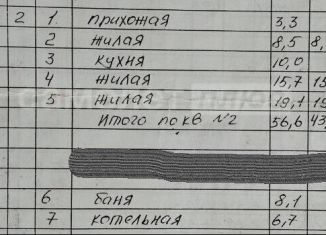 2 1. прихожая 3,3
2 жилая 8,5 8,
3 кухня 10,0
4 жилая 15,7 15
5 жилая 19,1 19
Итого по кв №2 56,6 43
6 баня 8,1
7 котельная 6,7